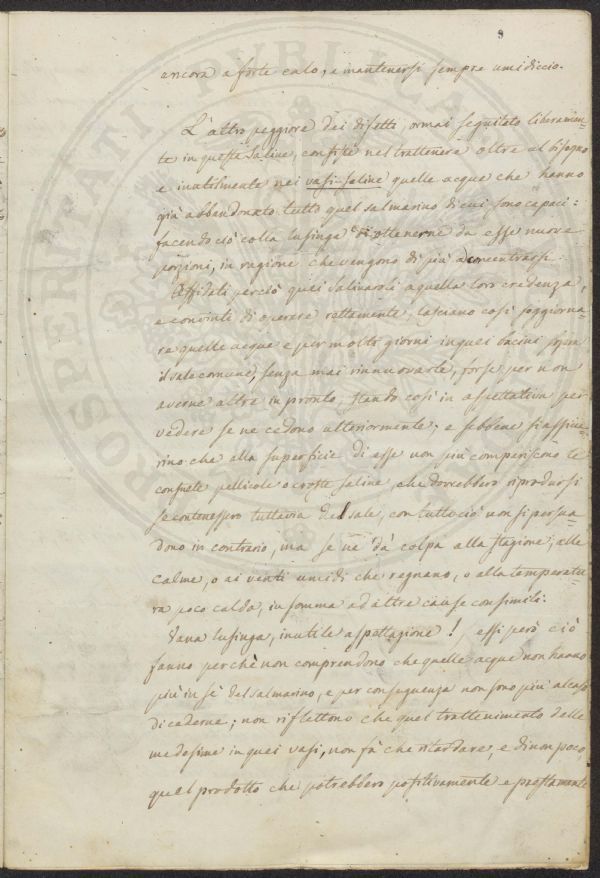 8
ancora a forte calo, e mantenersi sempre umidiccio.
L'altro peggiore dei difetti, ormai seguitato liberamen-
te in queste Saline, consiste nel trattenere oltre al bisogno
e inutilmente nei vasi-saline quelle acque che hanno
già abbandonato tutto quel salmarino di cui sono capaci:
facendo ciò colla lusinga di ottenerne da esse nuove
porzioni, in ragione che vengono di più a concentrarsi.
Affidati perciò quei salinaroli a quella loro credenza,
e convinti di operare rettamente, lasciano così soggiorna-
re quelle acque e per molti giorni in quei bacini
il sale comune, senza mai rinnuovarle, forse per non
averne altre in pronto, stando così in aspettativa per
vedere se ne cedono ulteriormente; e sebbene
rino che alla superficie di esse non più compariscono le
consuete pellicole o croste saline, che dovrebbero riprodursi
se contenessero tuttavia del sale, con tuttociò non si persua-
dono in contrario, ma se ne dà colpa alla stagione, alle
calme, o ai venti umidi che regnano, o alla temperatu-
ra poco calda, in somma ad altre cause consimili.
Vana lusinga, inutile aspettazione! essi però ciò
fanno perchè non comprendono che quelle acque non hanno
più in sè del salmarino, e per conseguenza non sono più al caso
di cederne; non riflettono che quel trattenimento delle
medesime in quei vasi, non fà che ritardare, e di non poco,
quel prodotto che potrebbero positivamente e prestamente